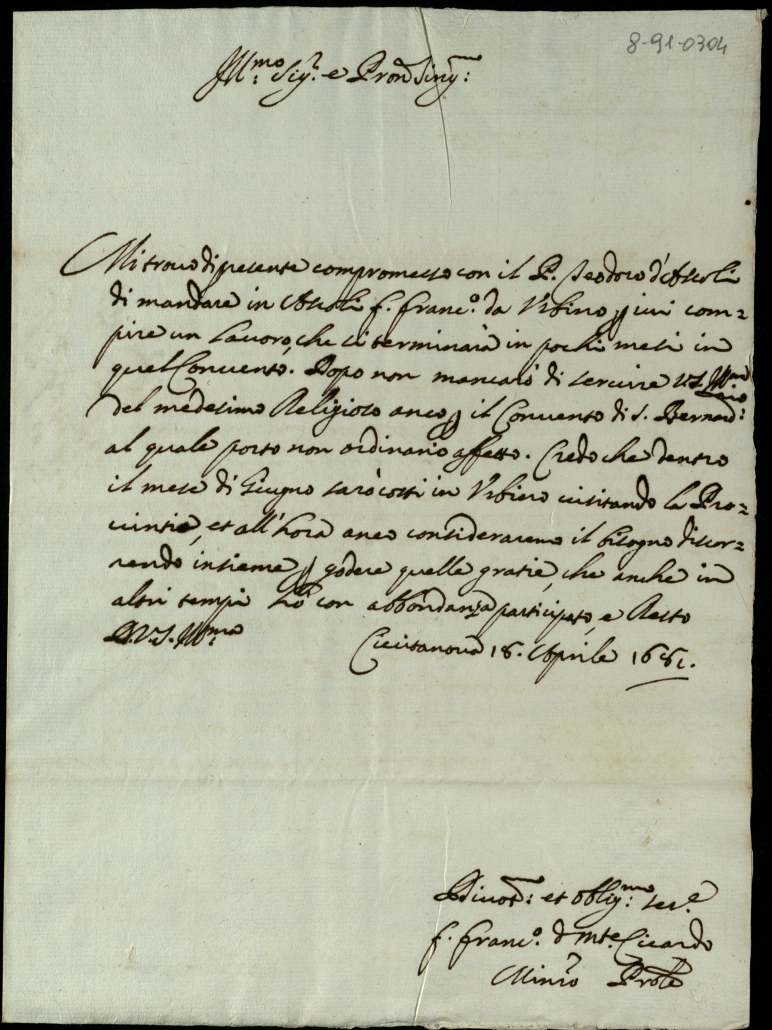 8-91-0304
Ill.mo Sig.r e Pron Sing.mo:
Mi trovo di presente compromesso con il P. Teodoro d'Ascoli
di mandare in Ascoli f. Franc.o da Vrbino p ivi com=
pire un lavoro, che si terminarà in pochi mesi in
quel Convento. Dopo non mancarò di servire VS Ill.ma
del medesimo Religioso anco p il Convento di S. Bernard:no
al quale porto non ordinario affetto. Credo che dentro
il mese di Giugno sarò costì in Vrbino visitando la Pro=
vintia, et all'hora anco consideraremo il bisogno discor=
rendo insieme, p godere quelle gratie, che anche in
altri tempi hò con abbondanza participato, e Resto
D. V. S. Ill.ma
Civitanova 18. Aprile 1681.
Divot.mo: et oblig.mo: ser.e
f. Franc.o d Mte Cicardo
Min.ro Prōle